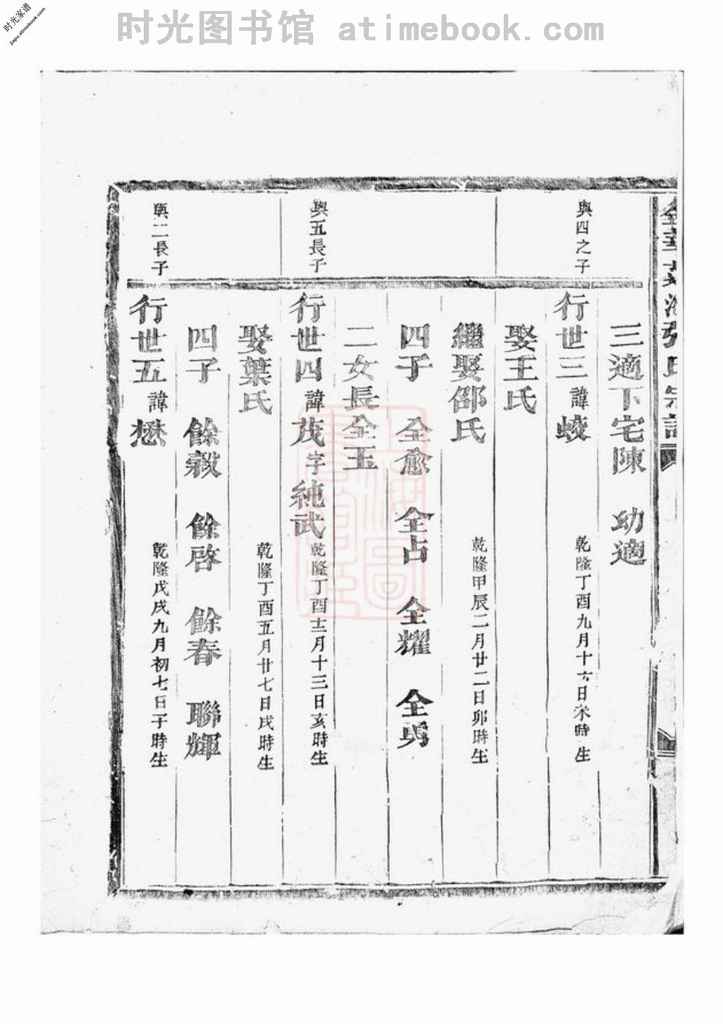 时光图书馆 atimebook.com
时光家谱
jiapu.atimebook.com
張氏宗譜
三適下宅陳 幼適
與四之子
行世三諱蛟 乾隆丁酉九月十六日未時生
娶王氏
繼娶邵氏 乾隆甲辰二月廿二日卯時生
四子 全愈 全占 全耀 全勇
二女長全玉
與五長子
行世四諱茂字純武 乾隆丁酉十二月十三日亥時生
娶葉氏 乾隆丁酉五月廿七日戌時生
四子 餘穀 餘啓 餘春 聯輝
與二長子
行世五諱懋 乾隆戊戌九月初七日子時生